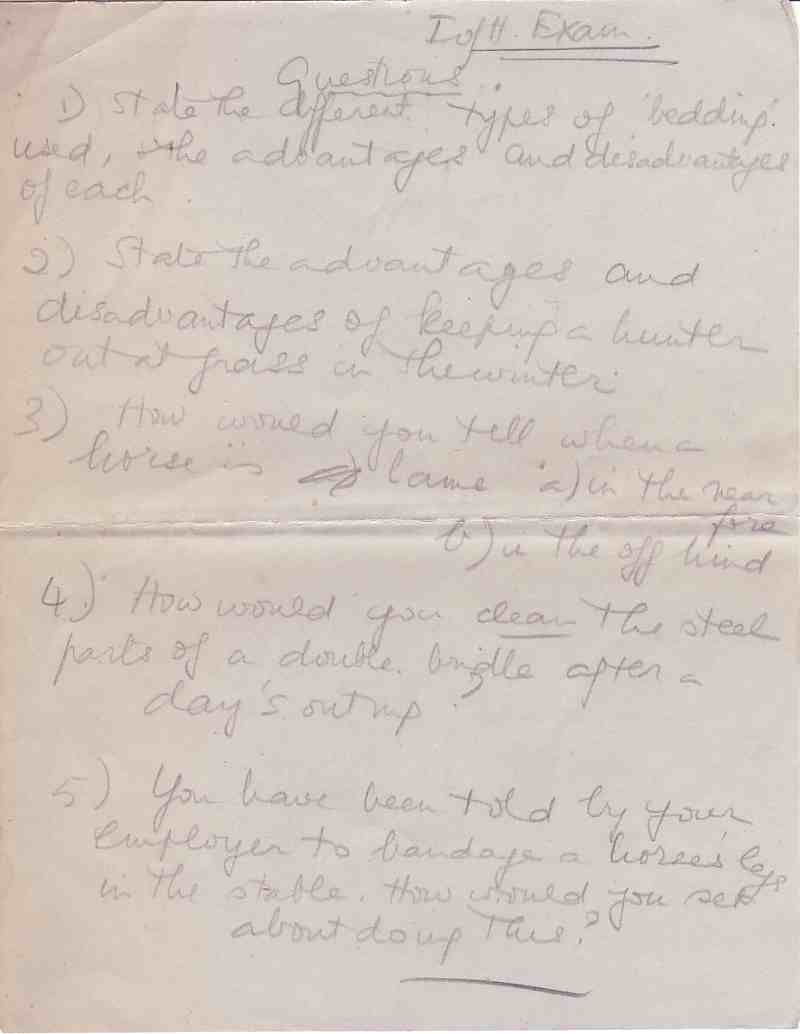 I of H. Exam.
Questions.
1) State the different types of 'bedding'
used, the advantages and disadvantages
of each.
2) State the advantages and
disadvantages of keeping a hunter
out at grass in the winter.
3) How would you tell when a
horse is lame a) in the near
fore
b) in the off hind
4) How would you clean the steel
parts of a double bridle after a
day's outing?
5) You have been told by your
employer to bandage a horse's legs
in the stable. How would you set
about doing this?